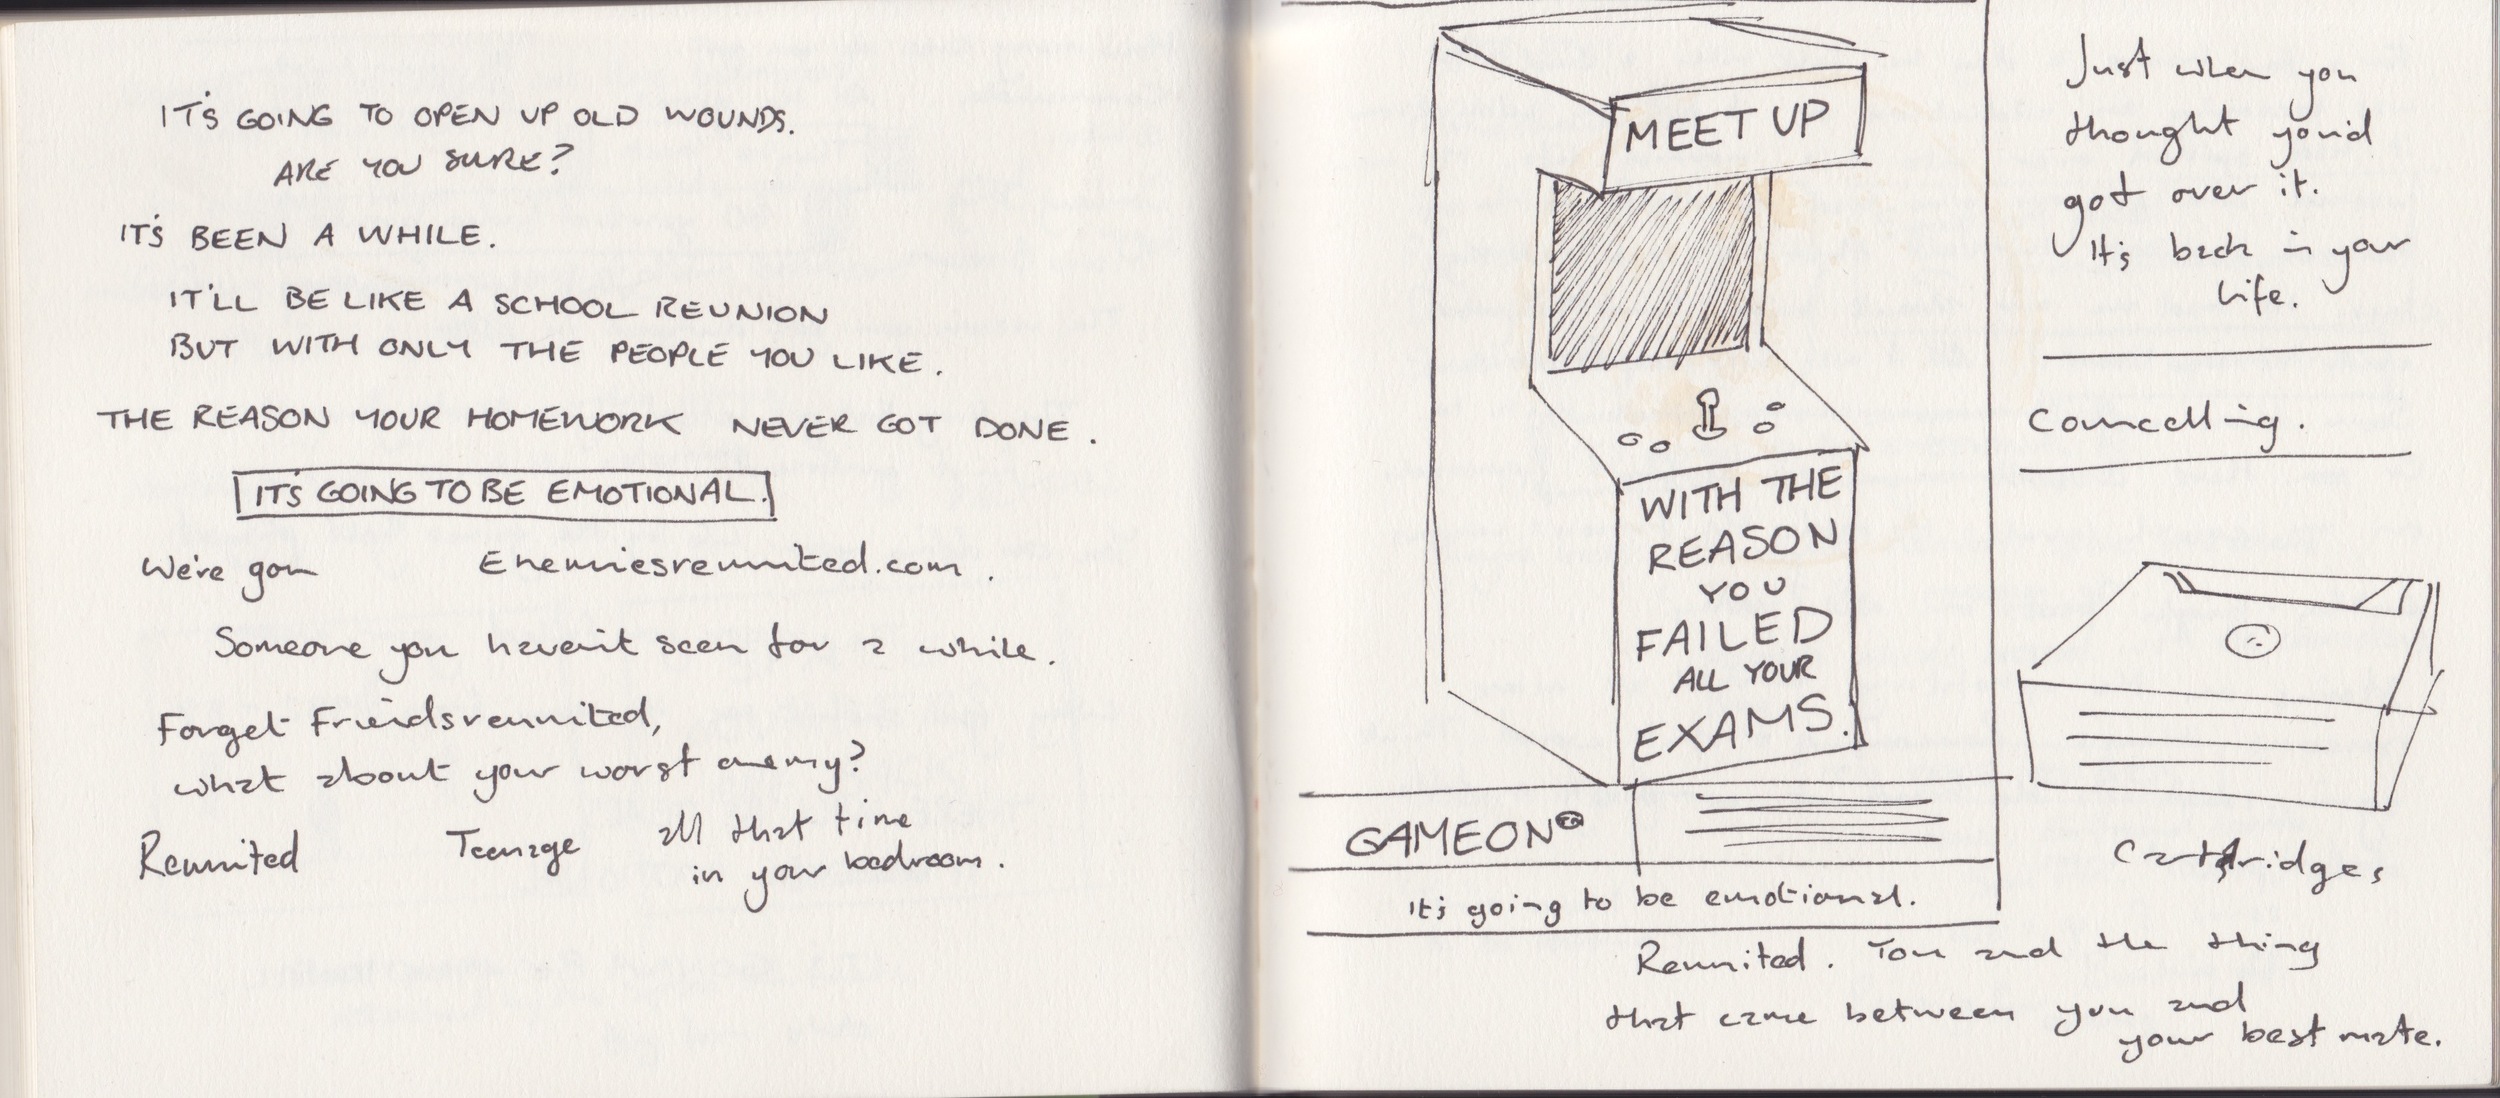 IT'S GOING TO OPEN UP OLD WOUNDS.
ARE YOU SURE?
IT'S BEEN A WHILE.
IT'LL BE LIKE A SCHOOL REUNION
BUT WITH ONLY THE PEOPLE YOU LIKE.
THE REASON YOUR HOMEWORK NEVER GOT DONE.
IT'S GOING TO BE EMOTIONAL.
We're gon Enemiesreunited.com.
Someone you haven't seen for a while.
Forget Friendsreunited,
what about your worst enemy?
Reunited Teenage all that time
in your bedroom.
MEET UP
WITH THE
REASON
YOU
FAILED
ALL YOUR
EXAMS.
GAMEON
It's going to be emotional.
Reunited. You and the thing
that came between you and
your best mate.
Just when you
thought you'd
got over it.
It's back in your
life.
Councelling.
Cartridges